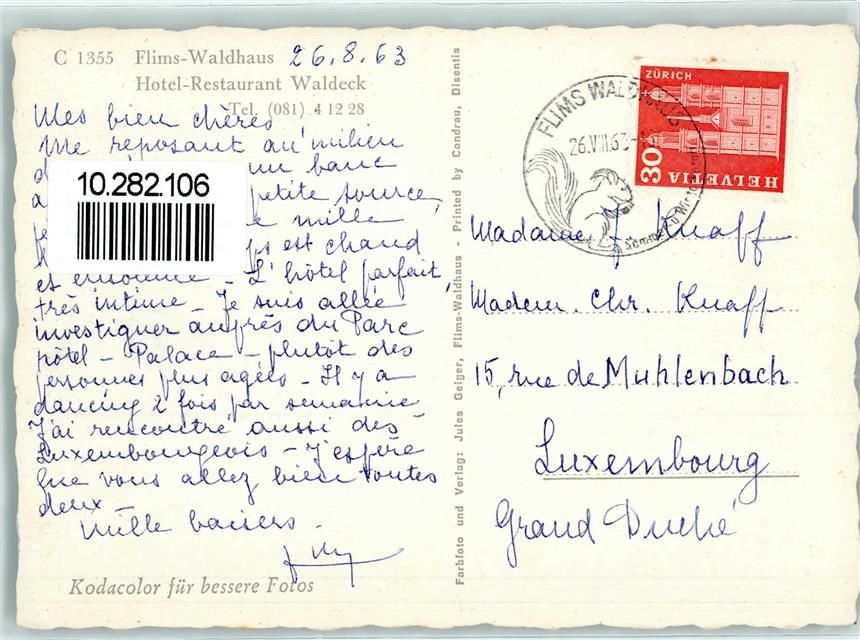 C 1355 Flims-Waldhaus 26.8.63
Hotel-Restaurant Waldeck
Tel. (081) 4 12 28
Mes bien chères
Me reposant au milieu
d un banc
a petite source,
mille
est chaud
et - L'hôtel parfait,
très intime - Je suis allée
investiguer auprès du Parc
hôtel - Palace - plutôt des
personnes plus agées - Il y a
dancing 2 fois par semaine
J'ai rencontré aussi des
Luxembourgeois - J'espère
que vous allez bien toutes
deux -
Mille baisers.
Kodacolor für bessere Fotos
10.282.106
Farbfoto und Verlag: Jules Geiger, Flims-Waldhaus - Printed by Condrau, Disentis
FLIMS WALDHAUS
26.VIII.63
ZÜRICH
30
HELVETIA
Madame J. Knaff
Madem. Chr. Knaff
15, rue de Muhlenbach
Luxembourg
Grand Duché